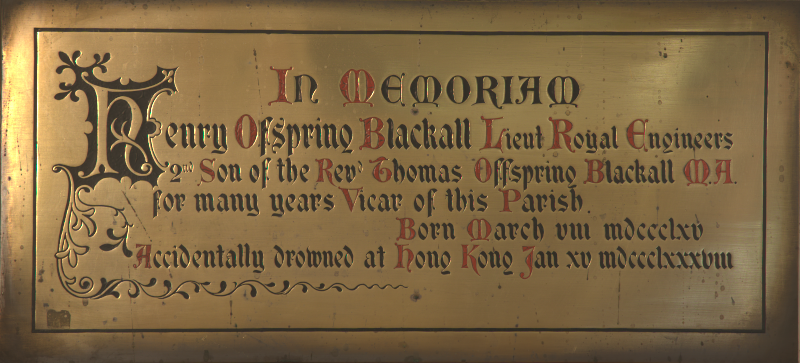 In Memoriam
Henry Offspring Blackall Lieut Royal Engineers
2nd Son of the Revd Thomas Offspring Blackall M.A.
for many years Vicar of this Parish.
Born March viii mdccclxv
Accidentally drowned at Hong Kong Jan xv mdccclxxxviii